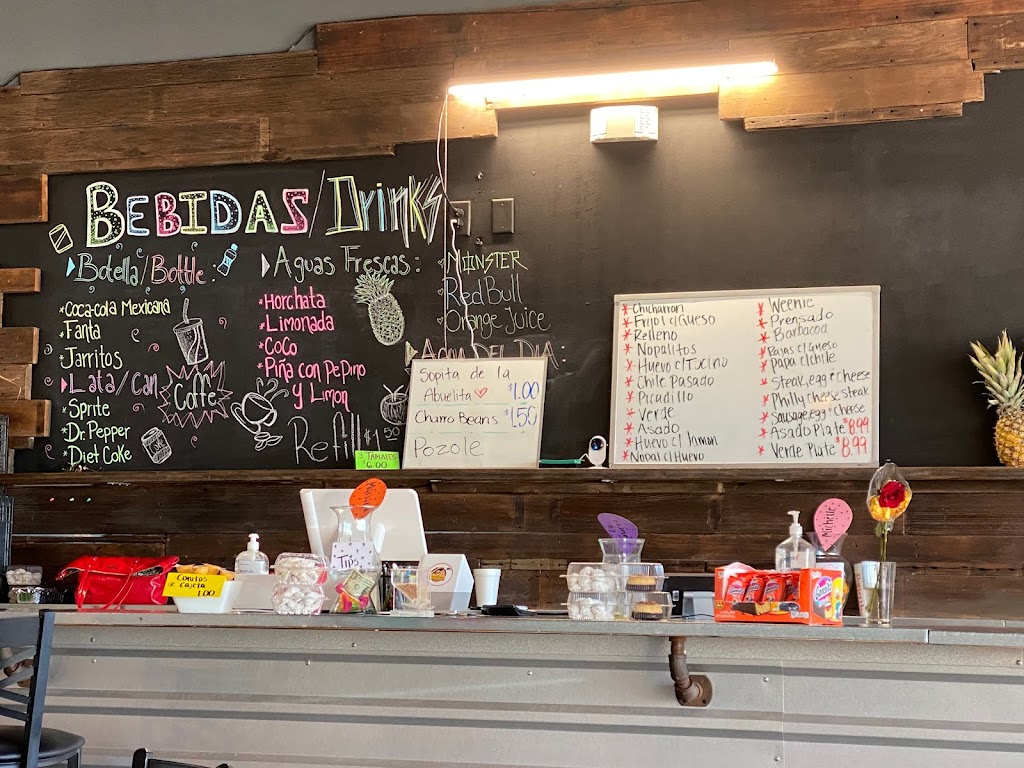 BEBIDAS/Drinks
Botella/Bottle
*Coca-cola Mexicana
*Fanta
*Jarritos
Lata/Can
*Sprite
*Dr. Pepper
*Diet Coke
Coffe
Aguas Frescas:
*Horchata
*Limonada
*CoCo
*Piña con PePino
y Limon
Refill $1.50
MONSTER
Red Bull
Orange Juice
AGUA DEL DIA:
Sopita de la
Abuelita $1.00
Charro Beans $1.50
Pozole
TAMALES
6.00
* Chicharron
* Frijol c/Gueso
* Relleno
* Nopalitos
* Huevo c/Tocino
* Chile Pasado
* Picadillo
* Verde
* Asado
* Huevo c/ Jamon
* Nopal c/ Huevo
* Weenie
* Prensado
* Barbacoa
* Rajas c/ Gueso
* Papa c/chile
* Steak, egg & Cheese
* Philly Cheese steak
* Sausage, egg & Cheese
* Asado Plate $8.99
* Verde Plate $8.99
Conitos
Cajeta
1.00
Tips
Michelle